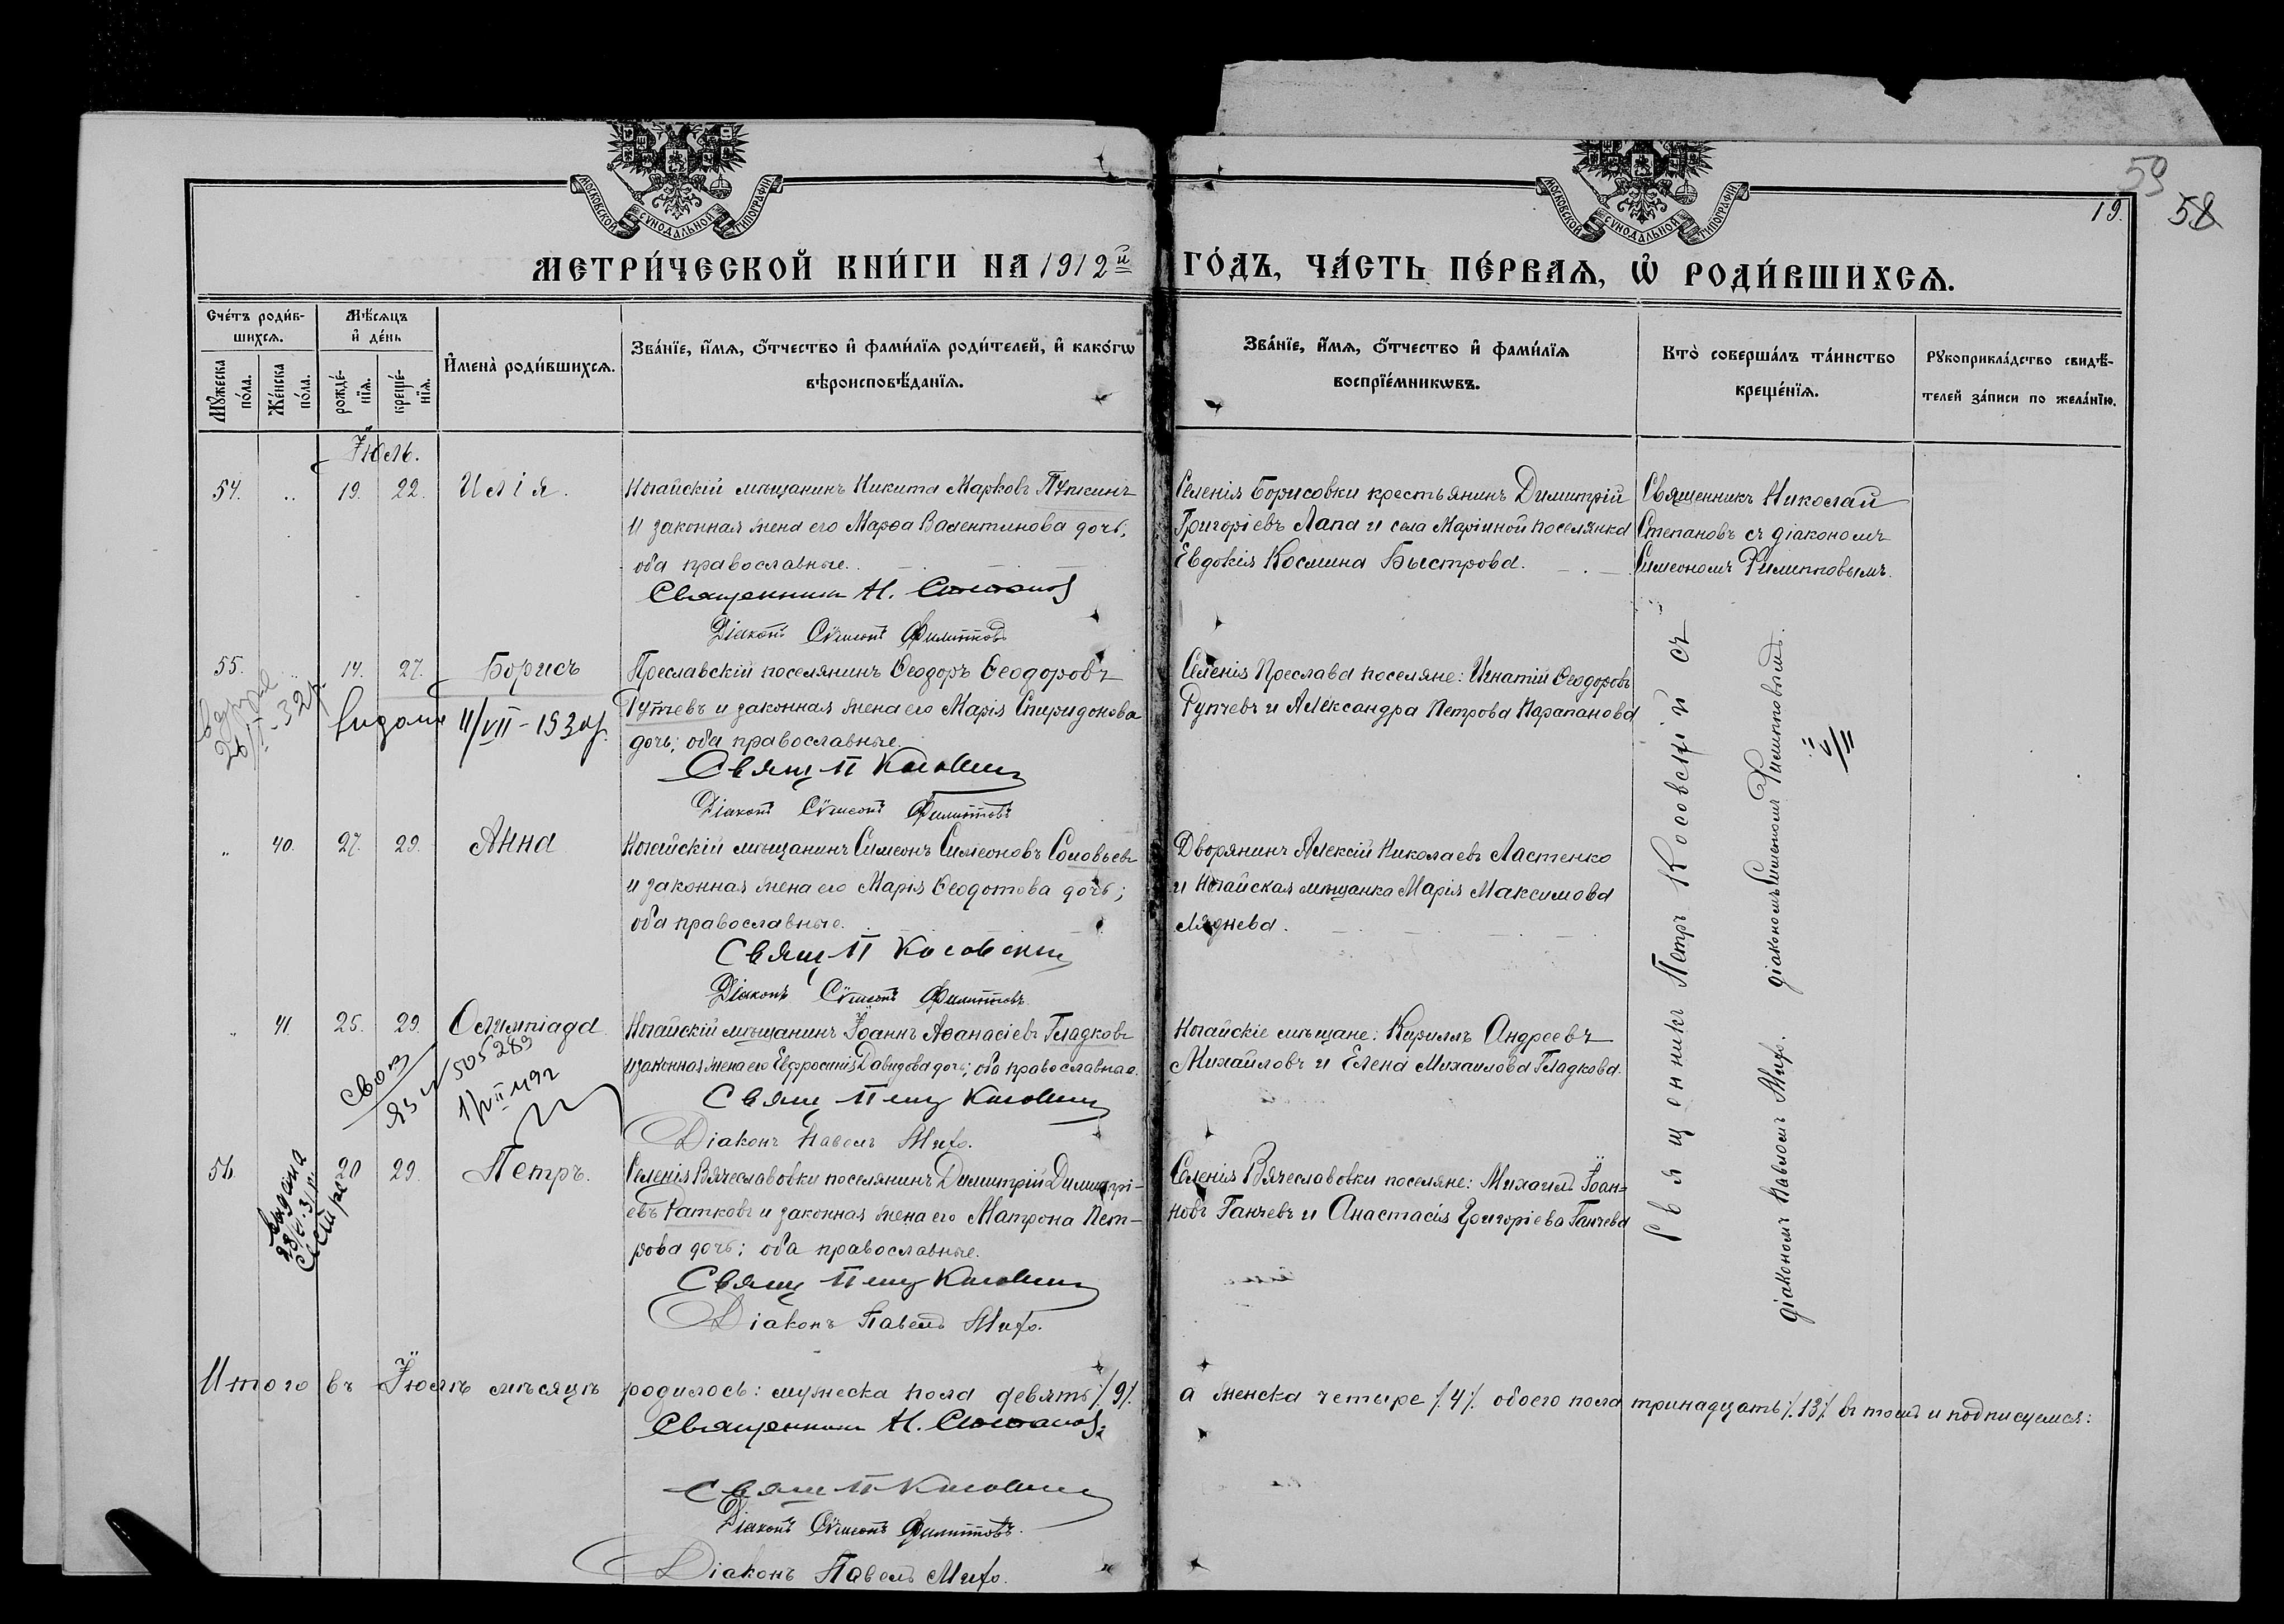 МОСКОВСКОЙ СѴНОДАЛЬНОЙ ТИПОГРАФІИ
МОСКОВСКОЙ СѴНОДАЛЬНОЙ ТИПОГРАФІИ
59
19.
58
МЕТРИ́ЧЕСКОЙ КНИ́ГИ НА 1912й
ГО́ДЪ, ЧА́СТЬ ПЕ́РВАѦ, Ѡ҆ РОДИ́ВШИХСѦ.
Сче́тъ роди́в-
шихсѧ.
Мꙋ́жеска по́ла.
Же́нска по́ла.
Мѣ́сѧцъ
и҆ де́нь
рожде́-
нїѧ.
креще́-
нїѧ.
И҆мена̀ роди́вшихсѧ.
Зва́нїе, и҆́мѧ, ѻ҆́тчество и҆ фами́лїѧ роди́телей, и҆ како́гѡ
вѣроисповѣ́данїѧ.
Зва́нїе, и҆́мѧ, ѻ҆́тчество и҆ фами́лїѧ
воспрїе́мникѡвъ.
Кто̀ соверша́лъ та́инство
креще́нїѧ.
Рꙋкоприкла́дство свидѣ́-
телей за́писи по жела́нїю.
Іюль.
54. „ 19. 22. Илія.
Ногайскій мѣщанинъ Никита Марковъ Пупкинъ
и законная жена его Марѳа Валентинова дочь,
оба православные.
Священникъ Н. Степановъ
Діаконъ Сѵмеонъ Филипповъ
Селенія Борисовки крестьянинъ Димитрій
Григоріевъ Лапа и села Маріиной поселянка
Евдокія Космина Быстрова.
Священникъ Николай
Степановъ съ діакономъ
Симеономъ Филипповымъ.
55. „ 14. 27. Борисъ
Преславскій поселянинъ Ѳеодоръ Ѳеодоровъ
Рупчевъ и законная жена его Марія Спиридонова
дочь; оба православные.
Свящ П Косовскій
Діаконъ Сѵмеонъ Филипповъ
Селенія Преслава поселяне: Игнатій Ѳеодоровъ
Рупчевъ и Александра Петрова Карапанова
„ 40. 27. 29. Анна
Ногайскій мѣщанинъ Симеонъ Симеоновъ Соловьевъ
и законная жена его Марія Ѳеодотова дочь;
оба православные.
Свящ П Косовскій
Діаконъ Сѵмеонъ Филипповъ
Дворянинъ Алексій Николаевъ Ластенко
и Ногайская мѣщанка Марія Максимова
Ляднева.
„ 41. 25. 29. Олимпіада
Ногайскій мѣщанинъ Іоаннъ Аѳанасіевъ Гладковъ
и законная жена его Евфросинія Давидова дочь; оба православные.
Свящ Петръ Косовскій
Діаконъ Павелъ Михо.
Ногайскіе мѣщане: Кириллъ Андреевъ
Михайловъ и Елена Михаилова Гладкова.
56. 20 29. Петръ.
Селенія Вячеславовки поселянинъ Димитрій Димитрі-
евъ Ратковъ и законная жена его Матрона Пет-
рова дочь; оба православные.
Свящ Петръ Косовскій
Діаконъ Павелъ Михо.
Селенія Вячеславовки поселяне: Михаилъ Іоан-
новъ Ганчевъ и Анастасія Григоріева Ганчева
Священникъ Петръ Косовскій съ
діакономъ Симеономъ Филипповымъ.
діакономъ Павломъ Михо.
Итого въ Іюлѣ мѣсяцѣ родилось: мужеска пола девять /.9/. а женска четыре /.4/. обоего пола тринадцать /.13/. въ томъ и подписуемся:
Священникъ Н. Степановъ.
Свящ П Косовскій
Діаконъ Сѵмеонъ Филипповъ.
Діаконъ Павелъ Михо.